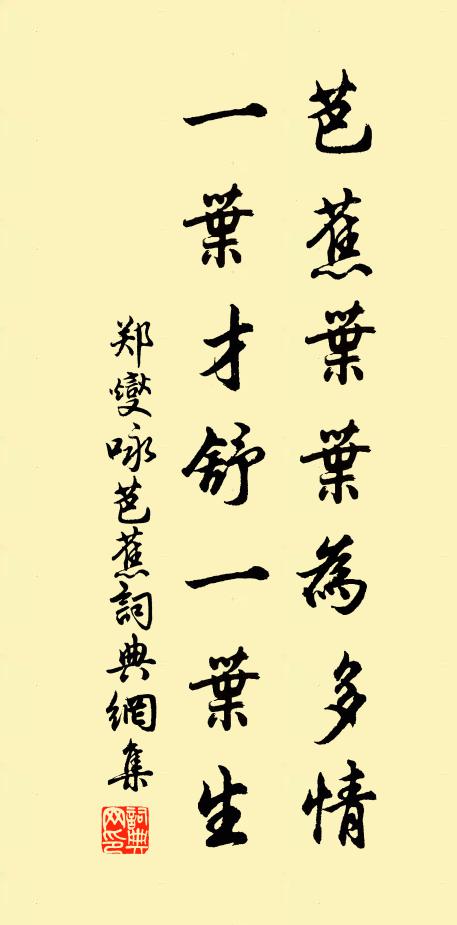 芭蕉葉葉為多情
一葉才舒一葉生
郑燮咏芭蕉詞典網集
詞典网印